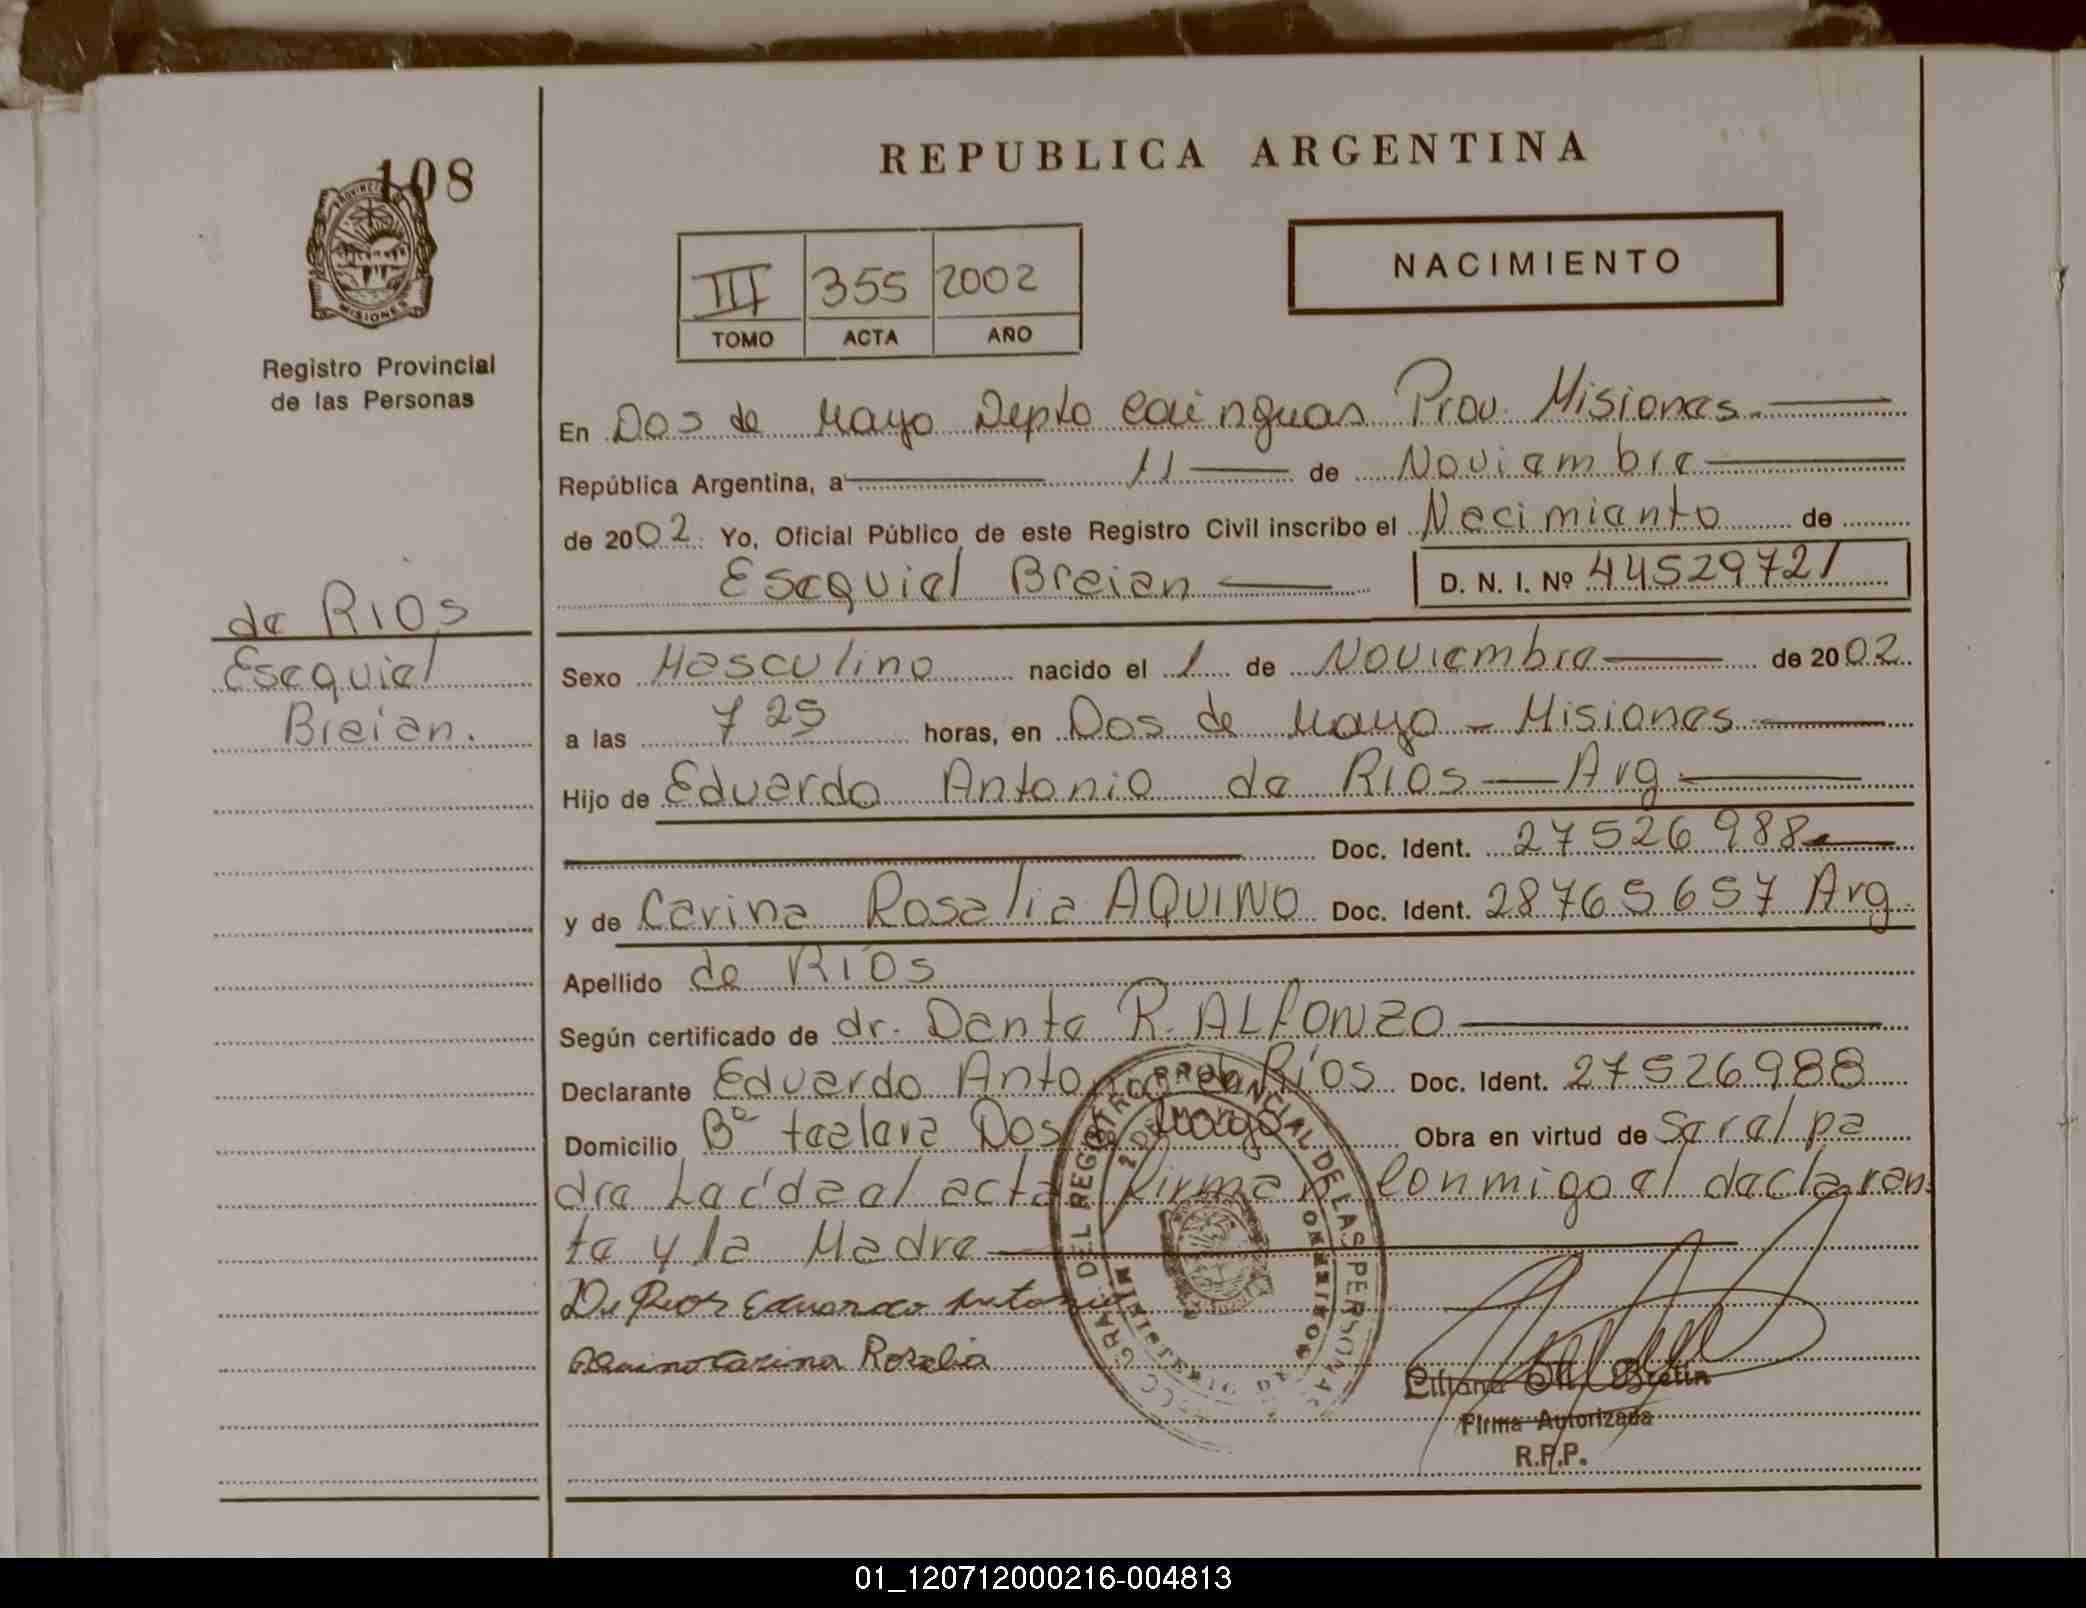 108
PROVINCIA
MISIONES
Registro Provincial
de las Personas
REPUBLICA ARGENTINA
III 355 2002
TOMO ACTA AÑO
NACIMIENTO
En Dos de Mayo Depto Cainguas Prov. Misiones
República Argentina, a 11 de Noviembre
de 2002. Yo, Oficial Público de este Registro Civil inscribo el Nacimiento de
Esequiel Breian D. N. I. Nº 44529721
de RIOS
Esequiel
Breian.
Sexo Masculino nacido el 1 de Noviembre de 2002
a las 7 25 horas, en Dos de Mayo - Misiones
Hijo de Eduardo Antonio de Rios - Arg
Doc. Ident. 27526988
y de Carina Rosalia AQUINO Doc. Ident. 28765657 Arg.
Apellido de Ríos
Según certificado de dr. Dante R. ALFONZO
Declarante Eduardo Antonio de Ríos Doc. Ident. 27526988
Domicilio Bº Dos de Mayo Obra en virtud de Ser el pa
dre Leída el acta firman Conmigo el declaran
te y la Madre
De Rios Eduardo Antonio
Aquino Carina Rosalia
DEL REGISTRO PROVINCIAL DE LAS PERSONAS
2 DE MAYO
MINISTERIO DE GOBIERNO
MISIONES
Liliana Bretin
Firma Autorizada
R.P.P.
01_120712000216-004813